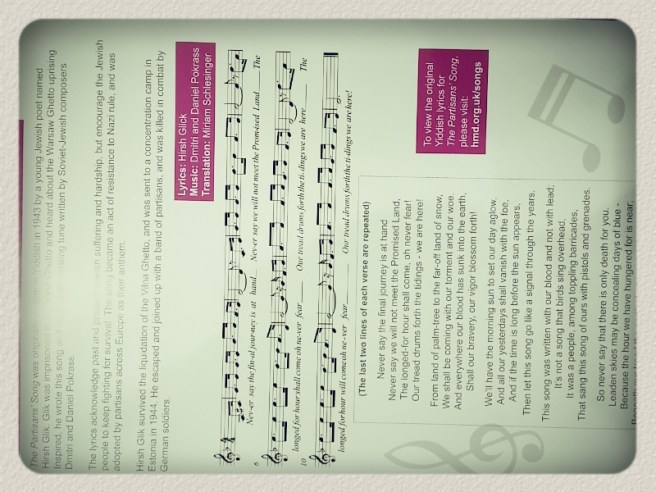 The Partisans' Song was
in 1943 by a young Jewish poet named
Hirsh Glik. Glik was
and heard about the Warsaw Ghetto uprising
Inspired, he wrote this song
tune written by Soviet-Jewish composers
Dmitri and Daniel Pokrass.
The lyrics acknowledge past and
suffering and hardship, but encourage the Jewish
people to keep fighting for survival.
became an act of resistance to Nazi rule, and was
adopted by partisans across Europe as their anthem.
Hirsh Glik survived the liquidation of the Vilna Ghetto, and was sent to a concentration camp in
Estonia in 1944. He escaped and joined up with a band of partisans, and was killed in combat by
German soldiers.
Lyrics: Hirsh Glick
Music: Dmitri and Daniel Pokrass
Translation: Miriam Schlesinger
Nev-er say the fin-al jour-ney is at hand. Nev-er say we will not meet the Prom-ised Land The
6
longed for hour shall come oh ne-ver fear Our tread drums forth the ti-dings we are here The
10
longed for hour will come oh ne-ver fear Our tread drums forth the ti-dings we are here!
To view the original
Yiddish lyrics for
The Partisans' Song,
please visit:
hmd.org.uk/songs
(The last two lines of each verse are repeated)
Never say the final journey is at hand
Never say we will not meet the Promised Land,
The longed-for hour shall come, oh never fear!
Our tread drums forth the tidings - we are here!
From land of palm-tree to the far-off land of snow,
We shall be coming with our torment and our woe
And everywhere our blood has sunk into the earth,
Shall our bravery, our vigor blossom forth!
We'll have the morning sun to set our day aglow,
And all our yesterdays shall vanish with the foe,
And if the time is long before the sun appears,
Then let this song go like a signal through the years.
This song was written with our blood and not with lead;
It's not a song that birds sing overhead,
It was a people, among toppling barricades,
That sang this song of ours with pistols and grenades.
So never say that there is only death for you.
Leaden skies may be concealing days of blue -
Because the hour we have hungered for is near;